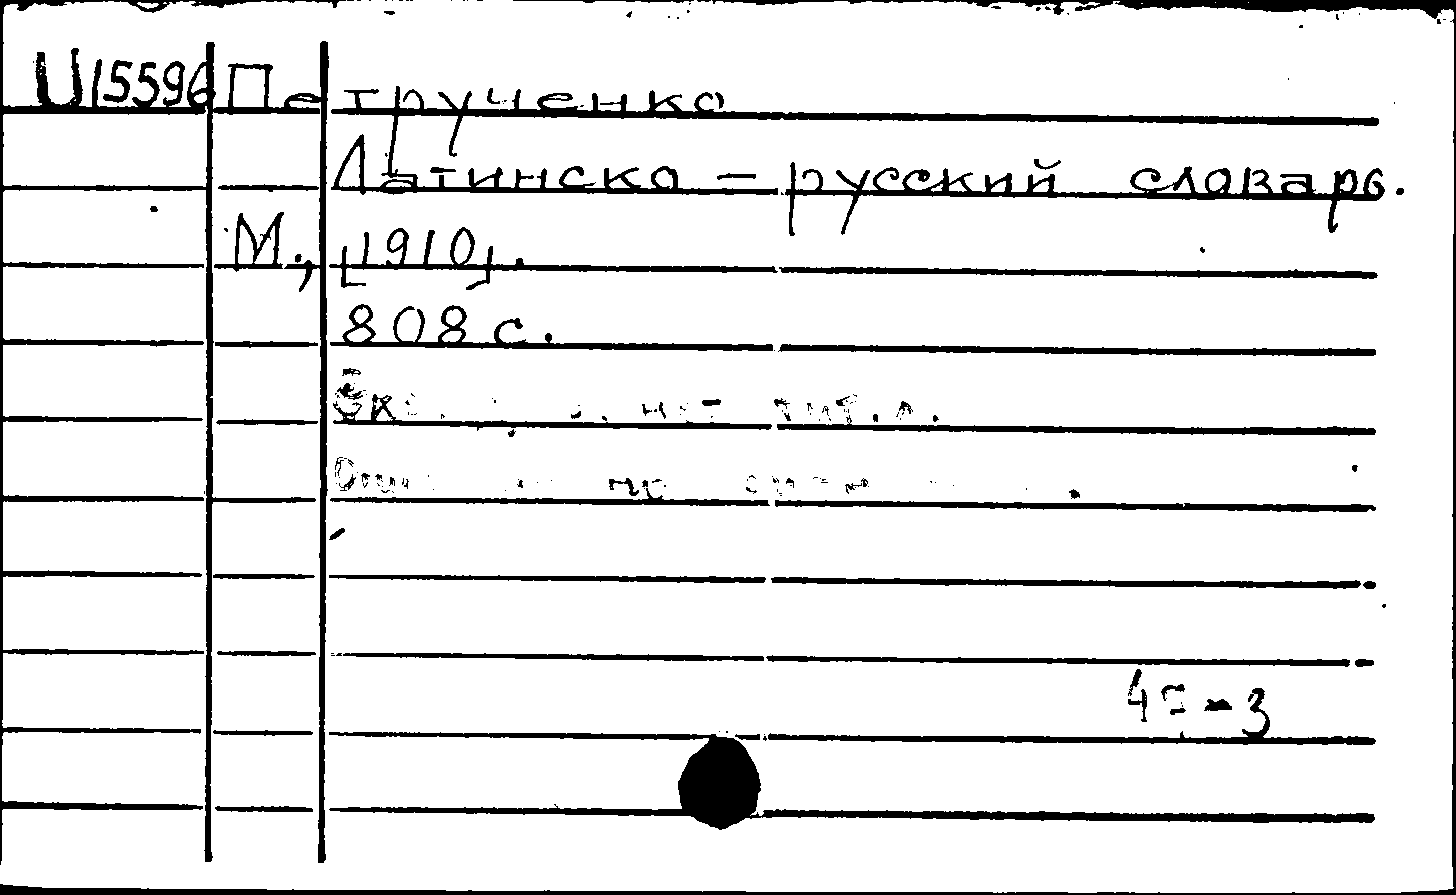 U15596 Петрученко
Латинско-русский словарь.
М., [1910].
808 с.
Экз. нет тит. л.
47-3